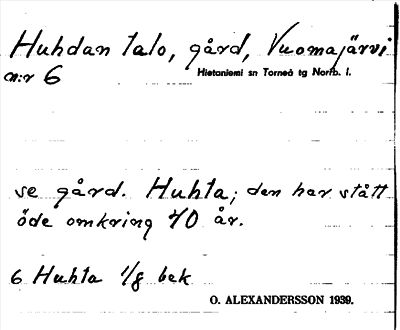 Huhdan talo, gård, Vuomajärvi
n:r 6
Hietaniemi sn Torneå tg Norrb. l.
se gård. Huhta; den har stått
öde omkring 70 år.
6 Huhta 1/8 bek
O. ALEXANDERSSON 1939.